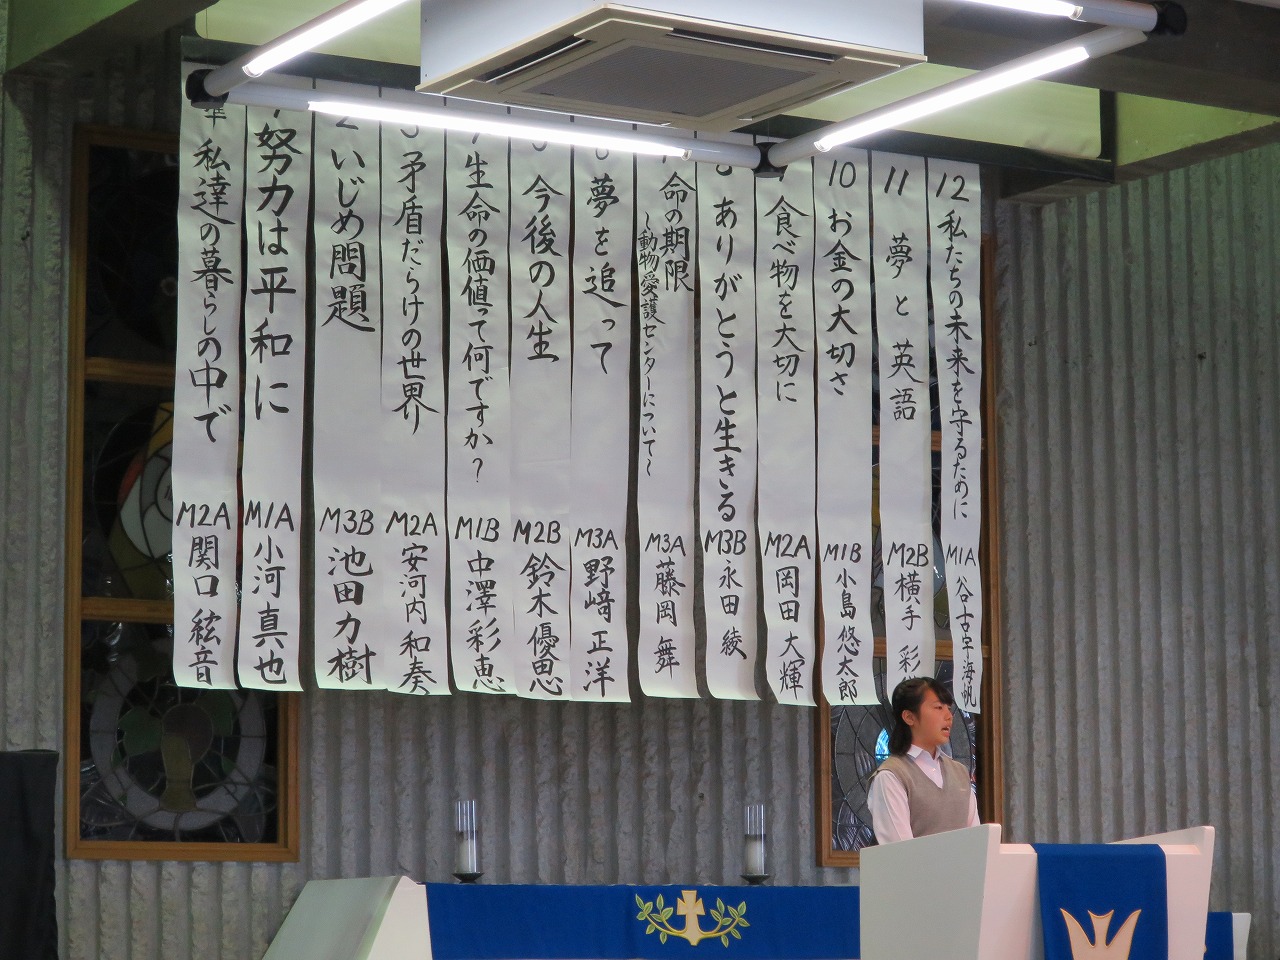 私達の暮らしの中で M2A 関口 絃音
努力は平和に M1A 小河真也
2 いじめ問題 M3B 池田力樹
3 矛盾だらけの世界 M2A 安河内 和奏
生命の価値って何ですか? M1B 中澤彩恵
今後の人生 M2B 鈴木優思
夢を追って M3A 野﨑正洋
命の期限
~動物愛護センターについて~ M3A 藤岡 舞
ありがとうと生きる M3B 永田 綾
食べ物を大切に M2A 岡田 大輝
10 お金の大切さ M1B 小島悠太郎
11 夢と英語 M2B 横手 彩
12 私たちの未来を守るために M1A 谷古宇海帆